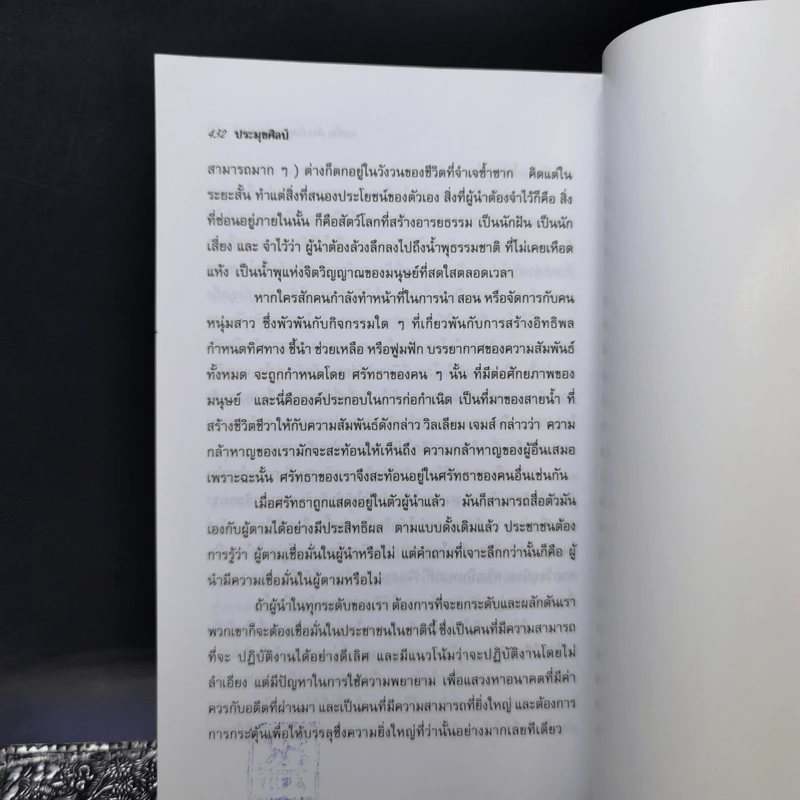 432 ประมุขศิลป์
สามารถมาก ๆ ) ต่างก็ตกอยู่ในวังวนของชีวิตที่จำเจซ้ำซาก คิดแต่ใน
ระยะสั้น ทำแต่สิ่งที่สนองประโยชน์ของตัวเอง สิ่งที่ผู้นำต้องจำไว้ก็คือ สิ่ง
ที่ซ่อนอยู่ภายในนั้น ก็คือสัตว์โลกที่สร้างอารยธรรม เป็นนักฝัน เป็นนัก
เสี่ยง และ จำไว้ว่า ผู้นำต้องล้วงลึกลงไปถึงน้ำพุธรรมชาติ ที่ไม่เคยเหือด
แห้ง เป็นน้ำพุแห่งจิตวิญญาณของมนุษย์ที่สดใสตลอดเวลา
หากใครสักคนกำลังทำหน้าที่ในการนำ สอน หรือจัดการกับคน
หนุ่มสาว ซึ่งพัวพันกับกิจกรรมใด ๆ ที่เกี่ยวพันกับการสร้างอิทธิพล
กำหนดทิศทาง ชี้นำ ช่วยเหลือ หรือฟูมฟัก บรรยากาศของความสัมพันธ์
ทั้งหมด จะถูกกำหนดโดย ศรัทธาของคน ๆ นั้น ที่มีต่อศักยภาพของ
มนุษย์ และนี่คือองค์ประกอบในการก่อกำเนิด เป็นที่มาของสายน้ำ ที่
สร้างชีวิตชีวาให้กับความสัมพันธ์ดังกล่าว วิลเลียม เจมส์ กล่าวว่า ความ
กล้าหาญของเรามักจะสะท้อนให้เห็นถึง ความกล้าหาญของผู้อื่นเสมอ
เพราะฉะนั้น ศรัทธาของเราจึงสะท้อนอยู่ในศรัทธาของคนอื่นเช่นกัน
เมื่อศรัทธาถูกแสดงอยู่ในตัวผู้นำแล้ว มันก็สามารถสื่อตัวมัน
เองกับผู้ตามได้อย่างมีประสิทธิผล ตามแบบดั้งเดิมแล้ว ประชาชนต้อง
การรู้ว่า ผู้ตามเชื่อมั่นในผู้นำหรือไม่ แต่คำถามที่เจาะลึกกว่านั้นก็คือ ผู้
นำมีความเชื่อมั่นในผู้ตามหรือไม่
ถ้าผู้นำในทุกระดับของเรา ต้องการที่จะยกระดับและผลักดันเรา
พวกเขาก็จะต้องเชื่อมั่นในประชาชนในชาตินี้ ซึ่งเป็นคนที่มีความสามารถ
ที่จะ ปฏิบัติงานได้อย่างดีเลิศ และมีแนวโน้มว่าจะปฏิบัติงานโดยไม่
ลำเอียง แต่มีปัญหาในการใช้ความพยายาม เพื่อแสวงหาอนาคตที่มีค่า
ควรกับอดีตที่ผ่านมา และเป็นคนที่มีความสามารถที่ยิ่งใหญ่ และต้องการ
การกระตุ้นเพื่อให้บรรลุซึ่งความยิ่งใหญ่ที่ว่านั้นอย่างมากเลยทีเดียว